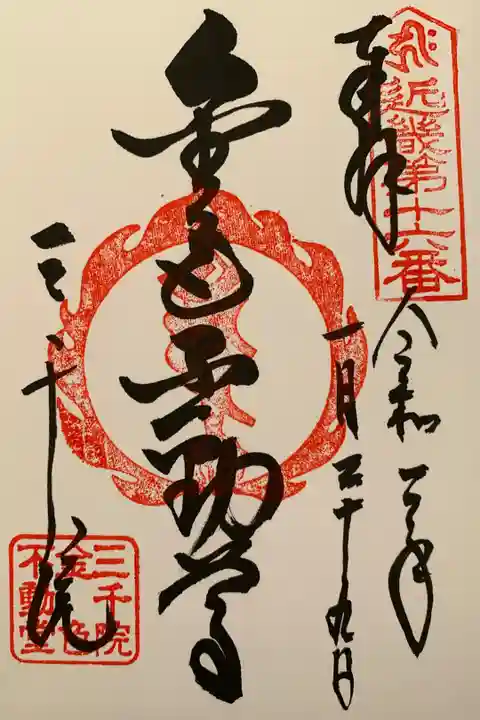 近畿第十六番
奉拝
令和 年
一月二十九日
金色不動尊
三千院
三千院
金色
不動堂